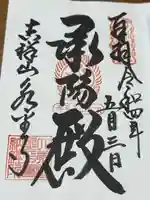 令和四年
五月三日
承陽殿
吉祥山永平寺